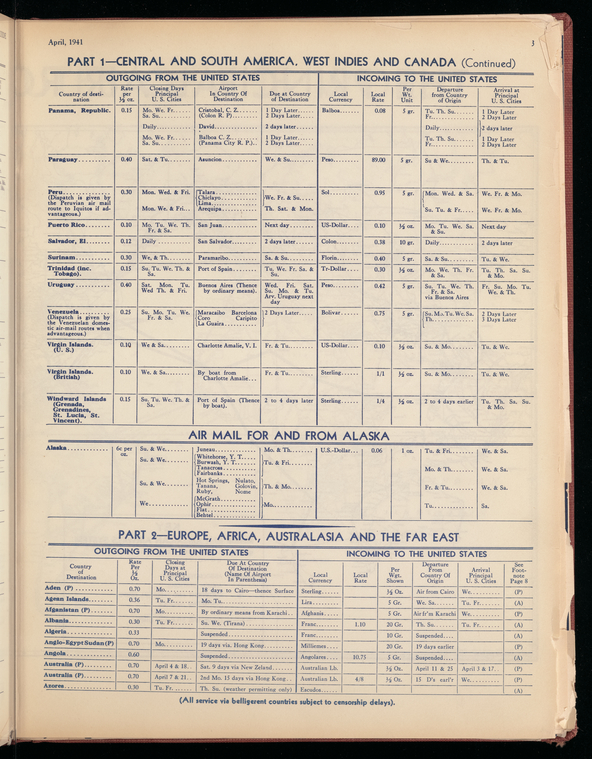 April, 1941
3
PART 1—CENTRAL AND SOUTH AMERICA, WEST INDIES AND CANADA (Continued)
OUTGOING FROM THE UNITED STATES INCOMING TO THE UNITED STATES
Country of desti-nation Rate per ½ oz. Closing Days Principal U. S. Cities Airport In Country Of Destination Due at Country of Destination Local Currency Local Rate Per Wt. Unit Departure from Country of Origin Arrival at Principal U. S. Cities
Panama, Republic. 0.15 Mo. We. Fr. Sa. Su. Cristobal, C. Z. (Colon R. P.) 1 Day Later 2 Days Later Balboa 0.08 5 gr. Tu. Th. Su. Fr. 1 Day Later 2 Days Later
Daily David 2 days later Daily 2 days later
Mo. We. Fr. Sa. Su. Balboa C. Z. (Panama City R. P.) 1 Day Later 2 Days Later Tu. Th. Su. Fr. 1 Day Later 2 Days Later
Paraguay 0.40 Sat. & Tu. Asuncion We. & Su. Peso 89.00 5 gr. Su & We. Th. & Tu.
Peru (Dispatch is given by the Peruvian air mail route to Iquitos if ad-vantageous.) 0.30 Mon. Wed. & Fri. Talara Chiclayo Lima We. Fr. & Su. Sol 0.95 5 gr. Mon. Wed. & Sa. We. Fr. & Mo.
Mon. We. & Fri. Arequipa Th. Sat. & Mon. Su. Tu. & Fr. We. Fr. & Mo.
Puerto Rico 0.10 Mo. Tu. We. Th. Fr. & Sa. San Juan Next day US-Dollar 0.10 ½ oz. Mo. Tu. We. Sa. & Su. Next day
Salvador, El 0.12 Daily San Salvador 2 days later Colon 0.38 10 gr. Daily 2 days later
Surinam 0.30 We. & Th. Paramaribo Sa. & Su. Florin 0.40 5 gr. Sa. & Su. Tu. & We.
Trinidad (inc. Tobago). 0.15 Su. Tu. We. Th. & Sa. Port of Spain Tu. We. Fr. Sa. & Su. Tr-Dollar 0.30 ½ oz. Mo. We. Th. Fr. & Sa. Tu. Th. Sa. Su. & Mo.
Uruguay 0.40 Sat. Mon. Tu. Wed Th. & Fri. Buenos Aires (Thence by ordinary means). Wed. Fri. Sat. Su. Mo. & Tu. Arv. Uruguay next day Peso 0.42 5 gr. Su. Tu. We. Th. Fr. & Sa. via Buenos Aires Fr. Su. Mo. Tu. We. & Th.
Venezuela (Dispatch is given by the Venezuelan domes-tic air-mail routes when advantageous.) 0.25 Su. Mo. Tu. We. Fr. & Sa. Maracaibo Barcelona Coro Caripito La Guaira 2 Days Later Bolivar 0.75 5 gr. Su. Mo. Tu. We. Sa. Th. 2 Days Later 3 Days Later
Virgin Islands. (U. S.) 0.10 We & Sa. Charlotte Amalie, V. I. Fr. & Tu. US-Dollar 0.10 ½ oz. Su. & Mo. Tu. & We.
Virgin Islands. (British) 0.10 We. & Sa. By boat from Charlotte Amalie Fr. & Tu. Sterling 1/1 ½ oz. Su. & Mo. Tu. & We.
Windward Islands (Grenada, Grenadines, St. Lucia, St. Vincent). 0.15 Su. Tu. We. Th. & Sa. Port of Spain (Thence by boat). 2 to 4 days later Sterling 1/4 ½ oz. 2 to 4 days earlier Tu. Th. Sa. Su. & Mo.
AIR MAIL FOR AND FROM ALASKA
Alaska 6c per oz. Su. & We. Juneau Mo. & Th. U.S.-Dollar 0.06 1 oz. Tu. & Fri. We. & Sa.
Su. & We. Whitehorse, Y. T. Burwash, Y. T. Tanacross Fairbanks Tu. & Fri. Mo. & Th. We. & Sa.
Su. & We. Hot Springs, Nulato, Tanana, Golovin, Ruby, Nome Th. & Mo. Fr. & Tu. We. & Sa.
We. McGrath Ophir Flat Bethel Mo. Tu. Sa.
PART 2—EUROPE, AFRICA, AUSTRALASIA AND THE FAR EAST
OUTGOING FROM THE UNITED STATES INCOMING TO THE UNITED STATES
Country of Destination Rate Per ½ Oz. Closing Days at Principal U. S. Cities Due At Country Of Destination (Name Of Airport In Parenthesis) Local Currency Local Rate Per Wgt. Shown Departure From Country Of Origin Arrival Principal U. S. Cities See Foot-note Page 8
Aden (P) 0.70 Mo. 18 days to Cairo—thence Surface Sterling ½ Oz. Air from Cairo We. (P)
Agean Islands 0.36 Tu. Fr. Mo. Tu. Lira 5 Gr. We. Su. Tu. Fr. (A)
Afganistan (P) 0.70 Mo. By ordinary means from Karachi Afghanis 5 Gr. Air fr'm Karachi We. (P)
Albania 0.30 Tu. Fr. Su. We. (Tirana) Franc 1.10 20 Gr. Th. Su. Tu. Fr. (A)
Algeria 0.33 Suspended Franc 10 Gr. Suspended (A)
Anglo-Egypt Sudan (P) 0.70 Mo. 19 days via. Hong Kong Milliemes 20 Gr. 19 days earlier (P)
Angola 0.60 Suspended Angolares 10.75 5 Gr. Suspended (A)
Australia (P) 0.70 April 4 & 18 Sat. 9 days via New Zeland Australian Lb. ½ Oz. April 11 & 25 April 3 & 17 (P)
Australia (P) 0.70 April 7 & 21 2nd Mo. 15 days via Hong Kong Australian Lb. 4/8 ½ Oz. 15 D's earl'r We. (P)
Azores 0.30 Tu. Fr. Th. Su. (weather permitting only) Escudos (A)
(All service via belligerent countries subject to censorship delays).